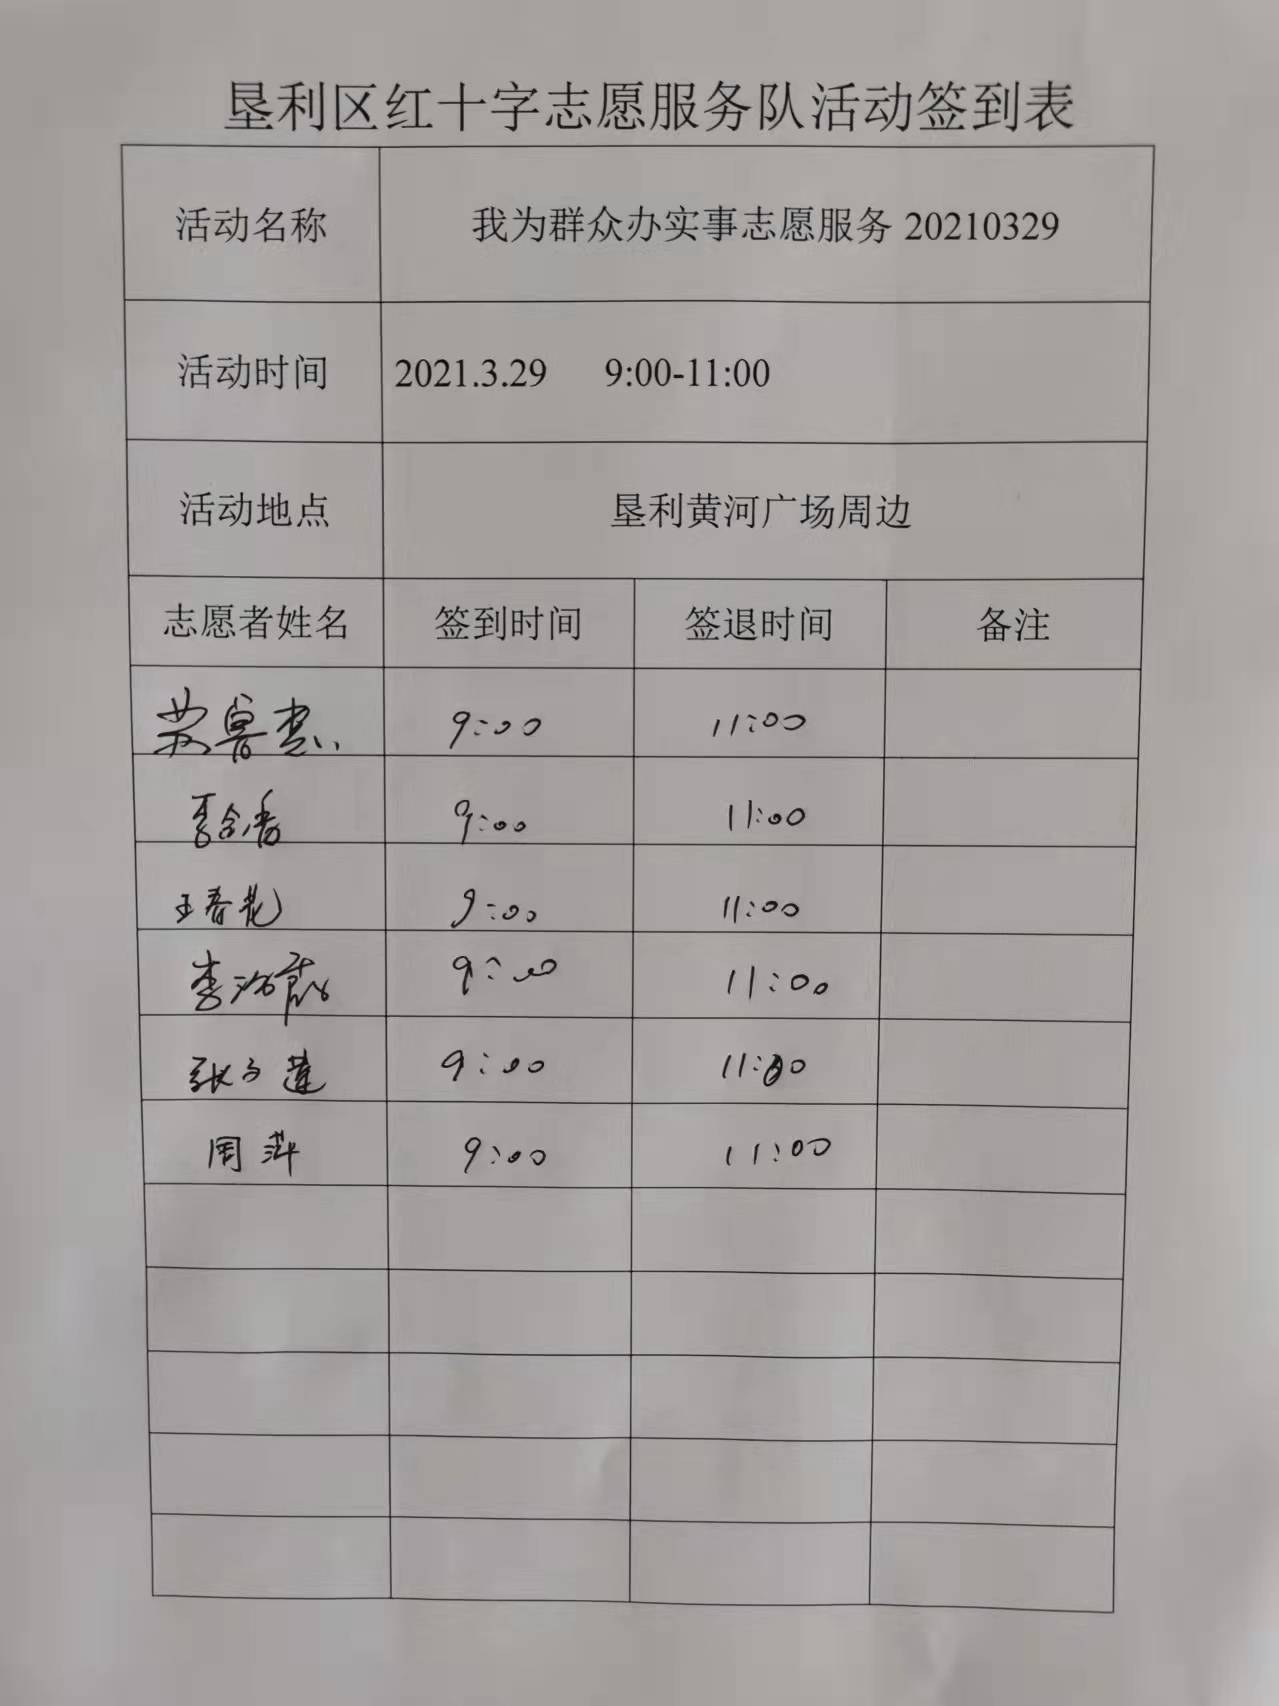 垦利区红十字志愿服务队活动签到表
活动名称 我为群众办实事志愿服务 20210329
活动时间 2021.3.29 9:00-11:00
活动地点 垦利黄河广场周边
志愿者姓名 签到时间 签退时间 备注
苏鲁杰 9:00 11:00
李合香 9:00 11:00
王春花 9:00 11:00
李 9:00 11:00
张 莲 9:00 11:00
周萍 9:00 11:00